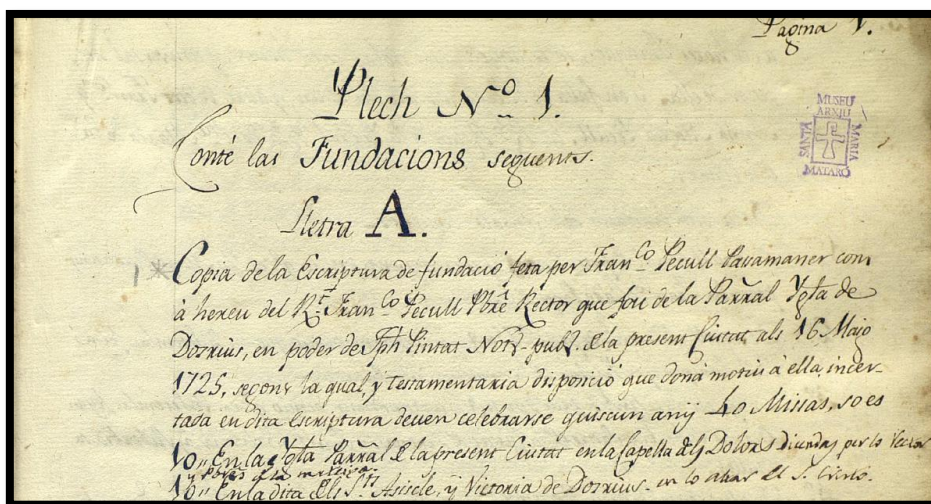 Pagina 1.
Plech Nº 1.
MUSEU ARXIU SANTA MARIA MATARÓ
Conté las Fundacions seguents.
Lletra A.
Copia de la Escriptura de fundació feta per Franco Pecull Paramaner com
à hereu del Rt Franco Pecull Pbre Rector que fou de la Parral Ygla de
Dosrius, en poder de Jph Pintat Notr publ. de la present Ciutat als 16 Maig
1725, segons la qual, y testamentaria disposició que doná motiu à ella incer-
tada en dita escriptura deuen celebrarse quiscun any 40 Missas, so es
10,, En la Ygla Parral de la present Ciutat en la Capella dels Dolors per lo
10,, En la dita dels Sts Asiscle, y Victoria de Dosrius en lo altar del St Cristo.